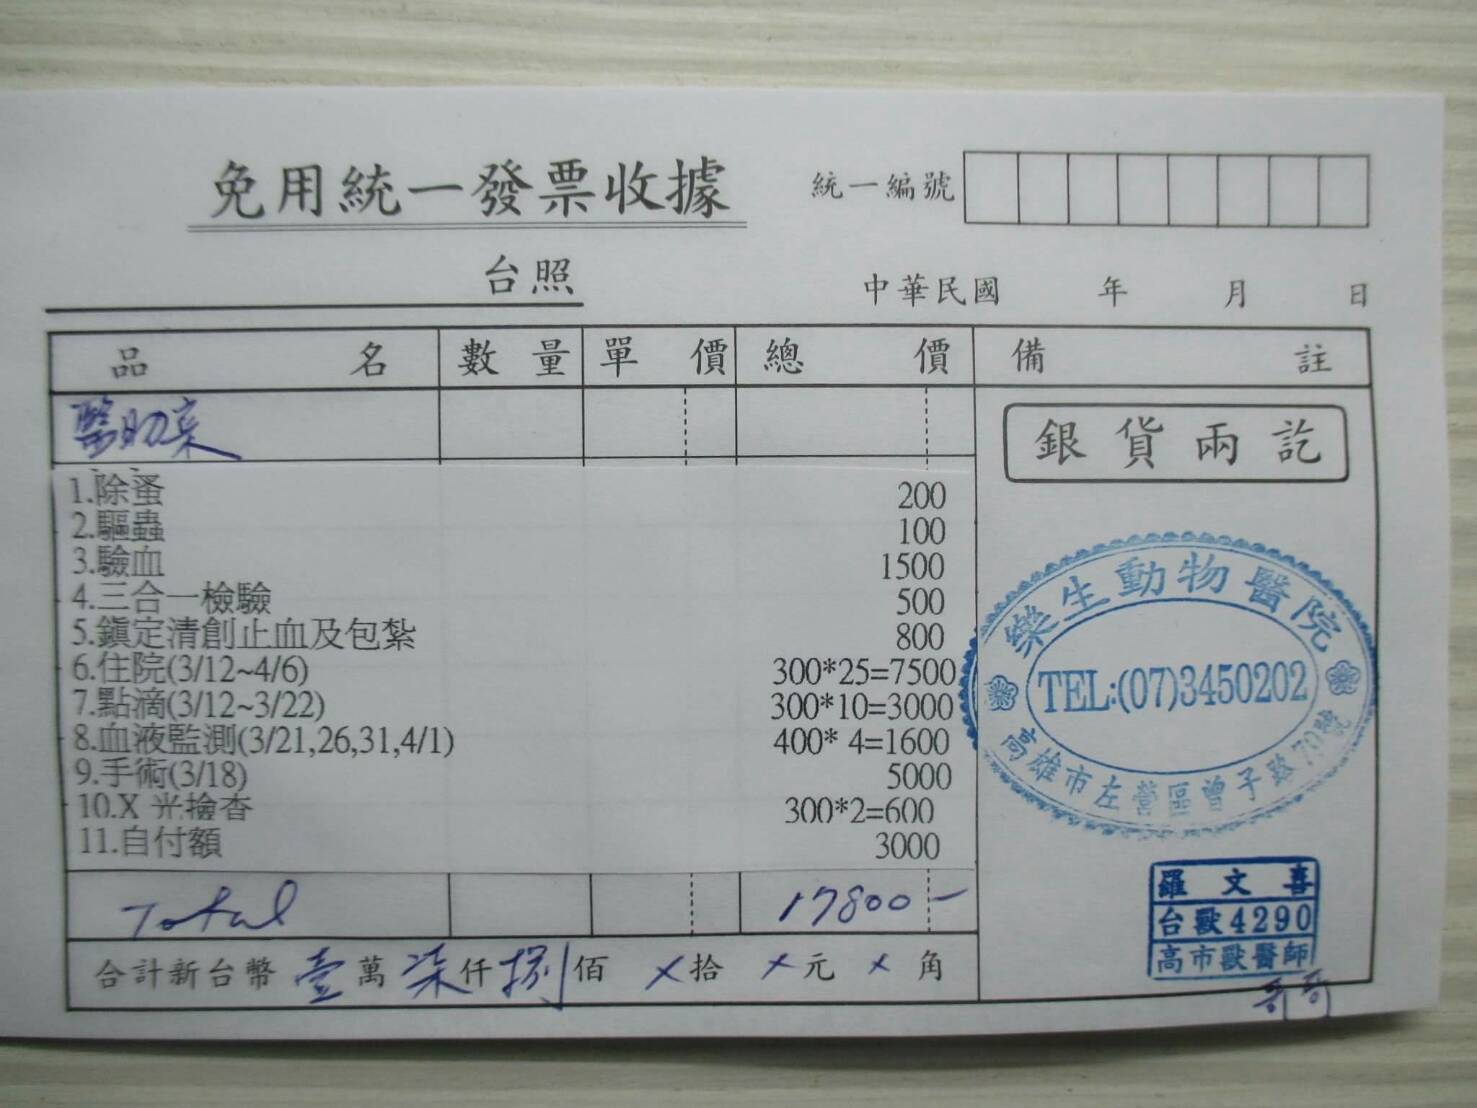 免用統一發票收據
統一編號
台照
中華民國 年 月 日
品名 數量 單價 總價 備註
醫助案
銀貨兩訖
1.除蚤 200
2.驅蟲 100
3.驗血 1500
4.三合一檢驗 500
5.鎮定清創止血及包紮 800
6.住院(3/12~4/6) 300*25=7500
7.點滴(3/12~3/22) 300*10=3000
8.血液監測(3/21,26,31,4/1) 400* 4=1600
9.手術(3/18) 5000
10.X 光檢查 300*2=600
11.自付額 3000
Total 17800-
合計新台幣 壹萬柒仟捌佰X拾X元X角
樂生動物醫院
TEL:(07)3450202
高雄市左營區曾子路70號
羅文喜
台獸4290
高市獸醫師
哥哥